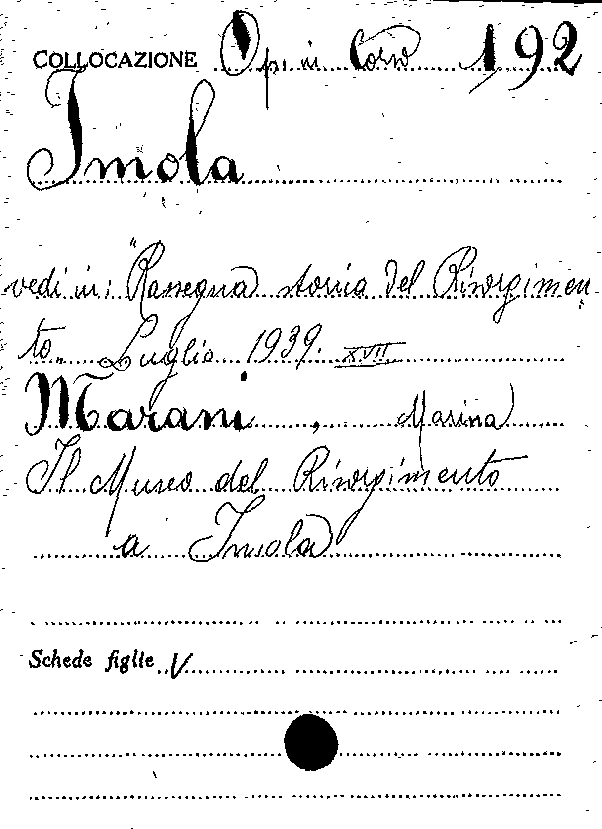 COLLOCAZIONE Op. in Corso 192
Imola
vedi in: "Rassegna storica del Risorgimen
to" Luglio 1939. XVII
Marani, Marina
Il Museo del Risorgimento
a Imola
Schede figlie V